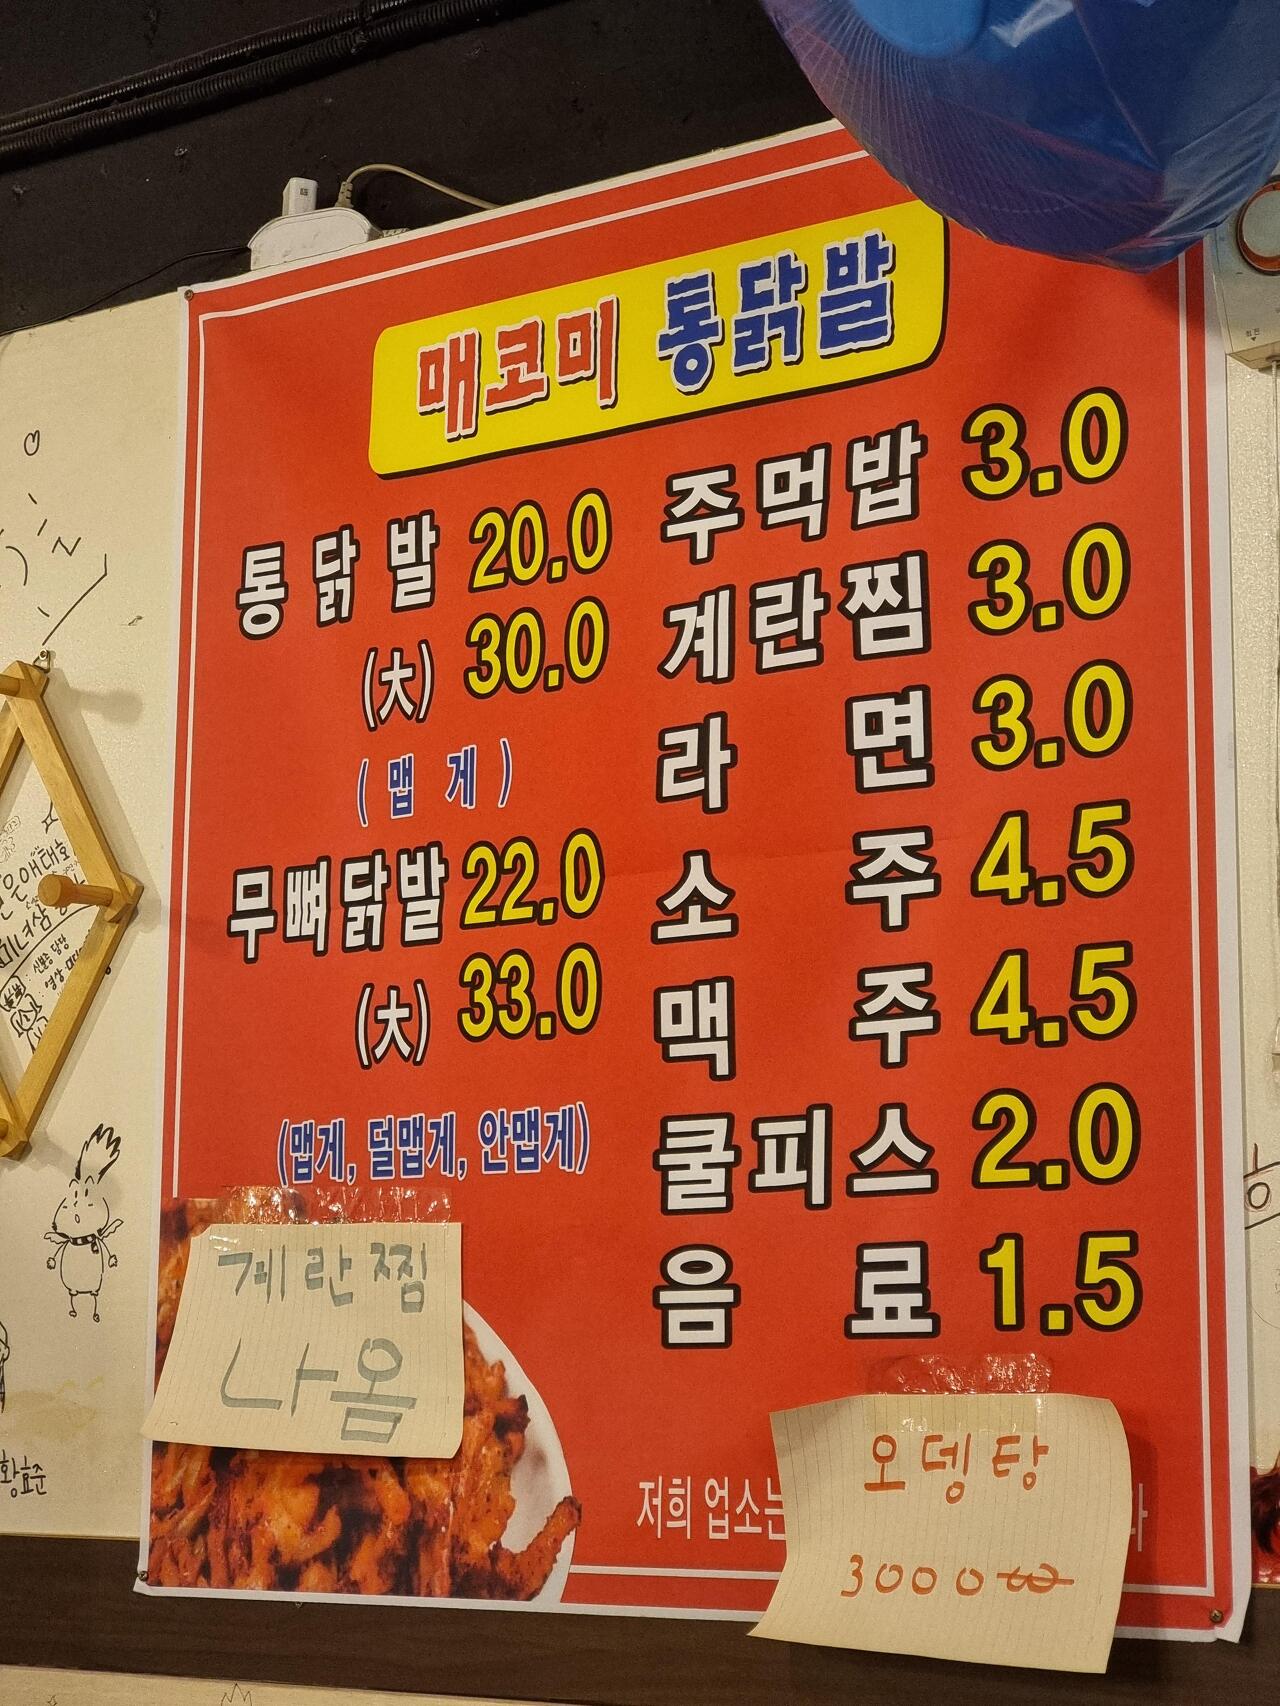 매코미 통닭발
통닭발 20.0
(大) 30.0
(맵게)
무뼈닭발 22.0
(大) 33.0
(맵게, 덜맵게, 안맵게)
주먹밥 3.0
계란찜 3.0
라면 3.0
소주 4.5
맥주 4.5
쿨피스 2.0
음료 1.5
계란찜
나옴
오뎅탕
3000₩
저희 업소는
황효준